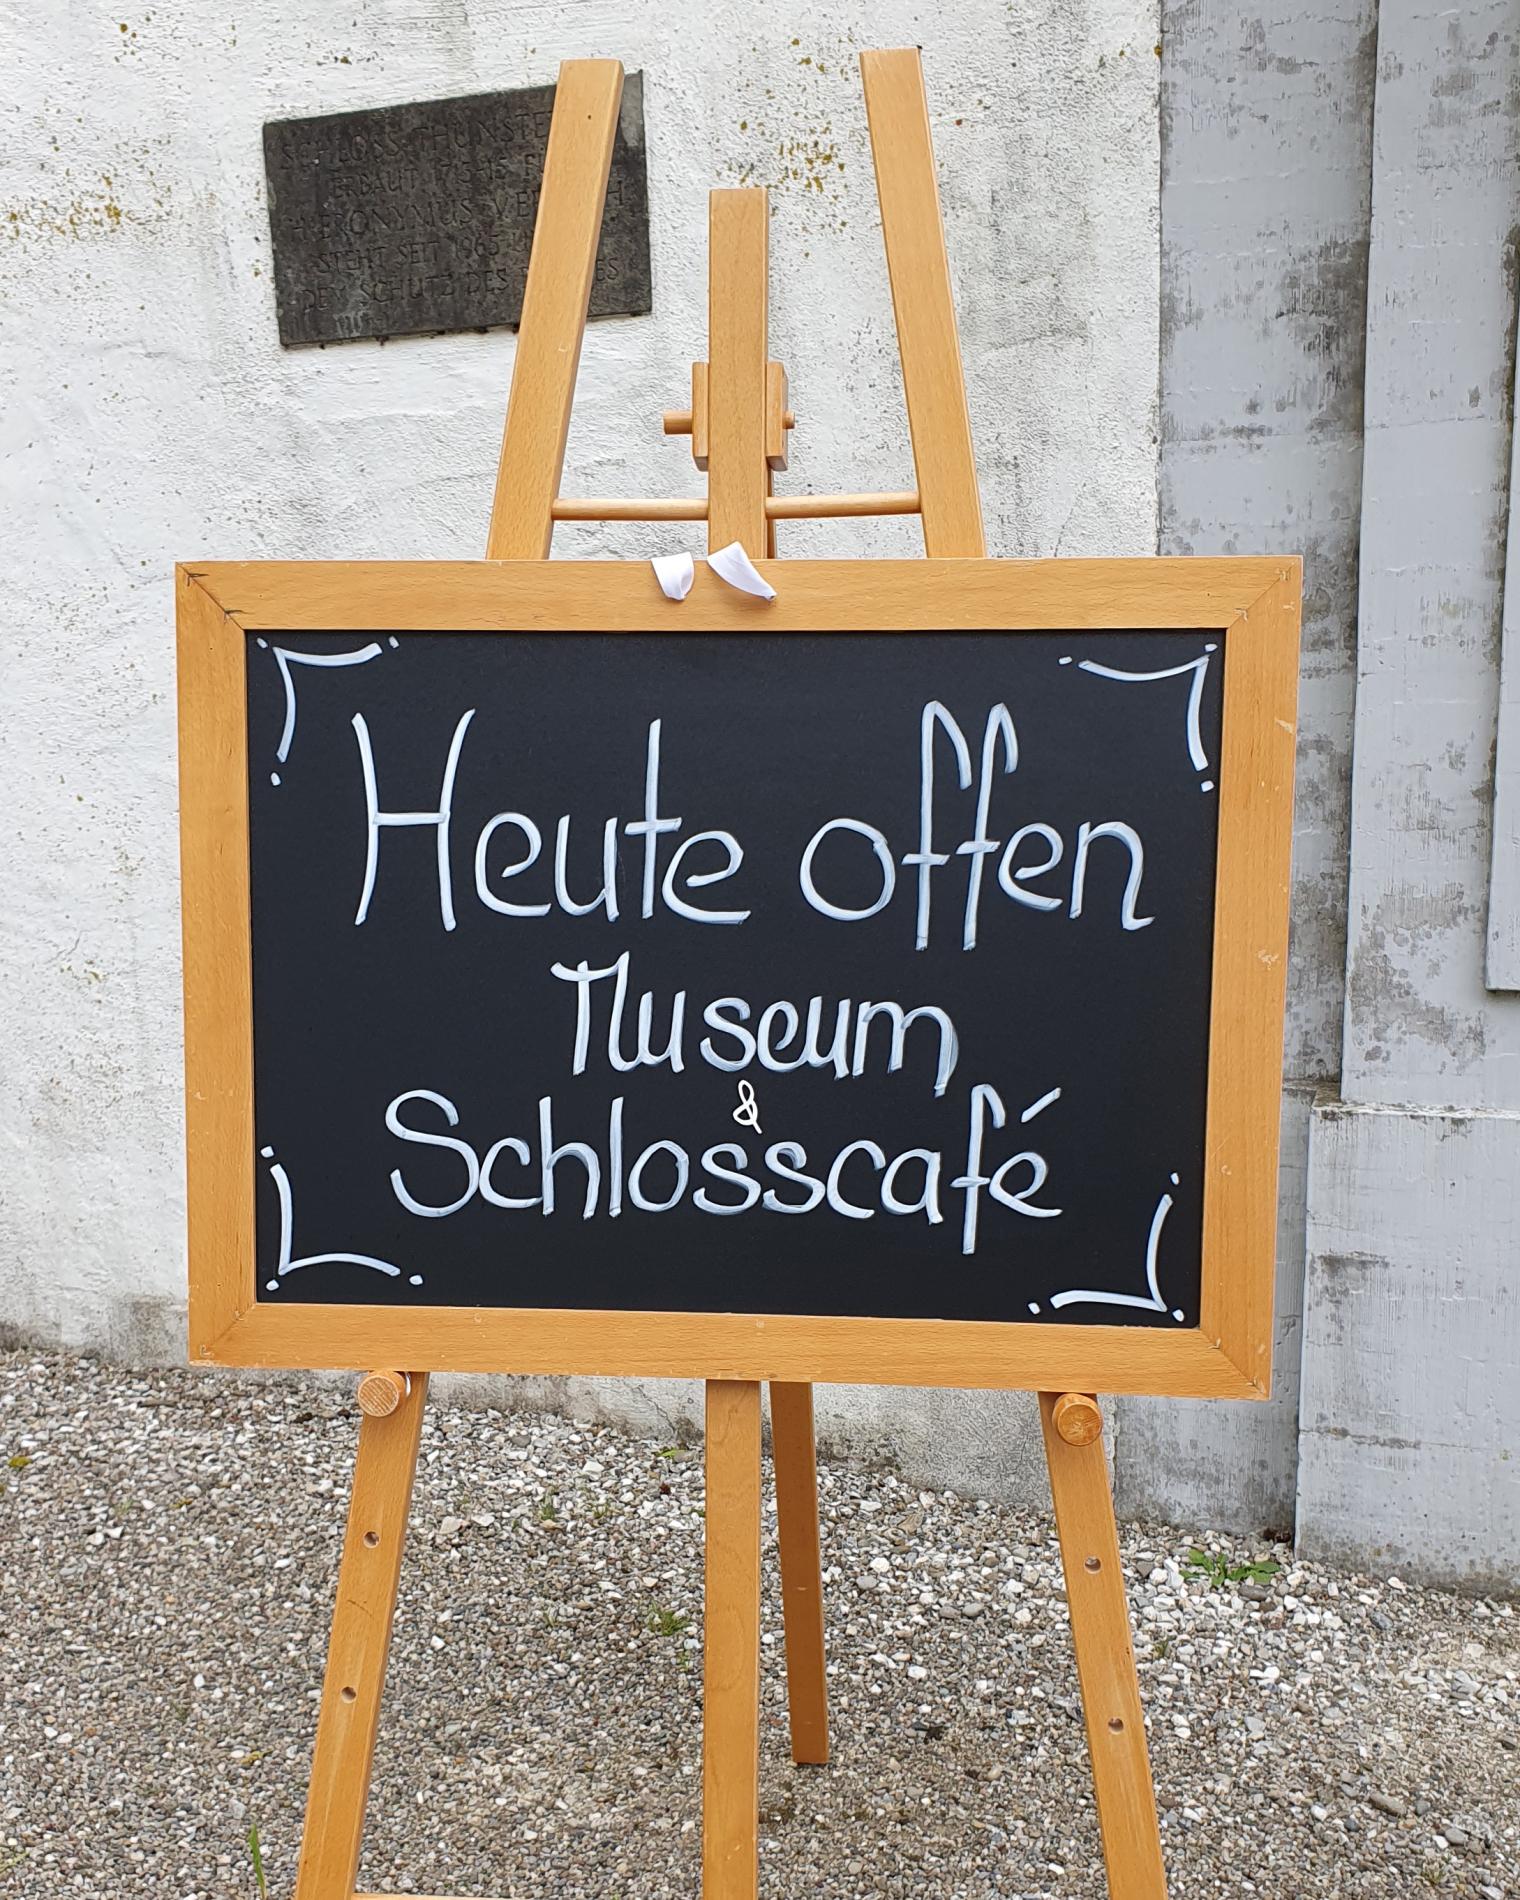 SCHLOSS THUNSTE
ERBAUT 1713-15 F
HIERONYMUS V
STEHT SEIT 1965
DEM SCHUTZ DES
Heute offen
Museum
&
Schlosscafé